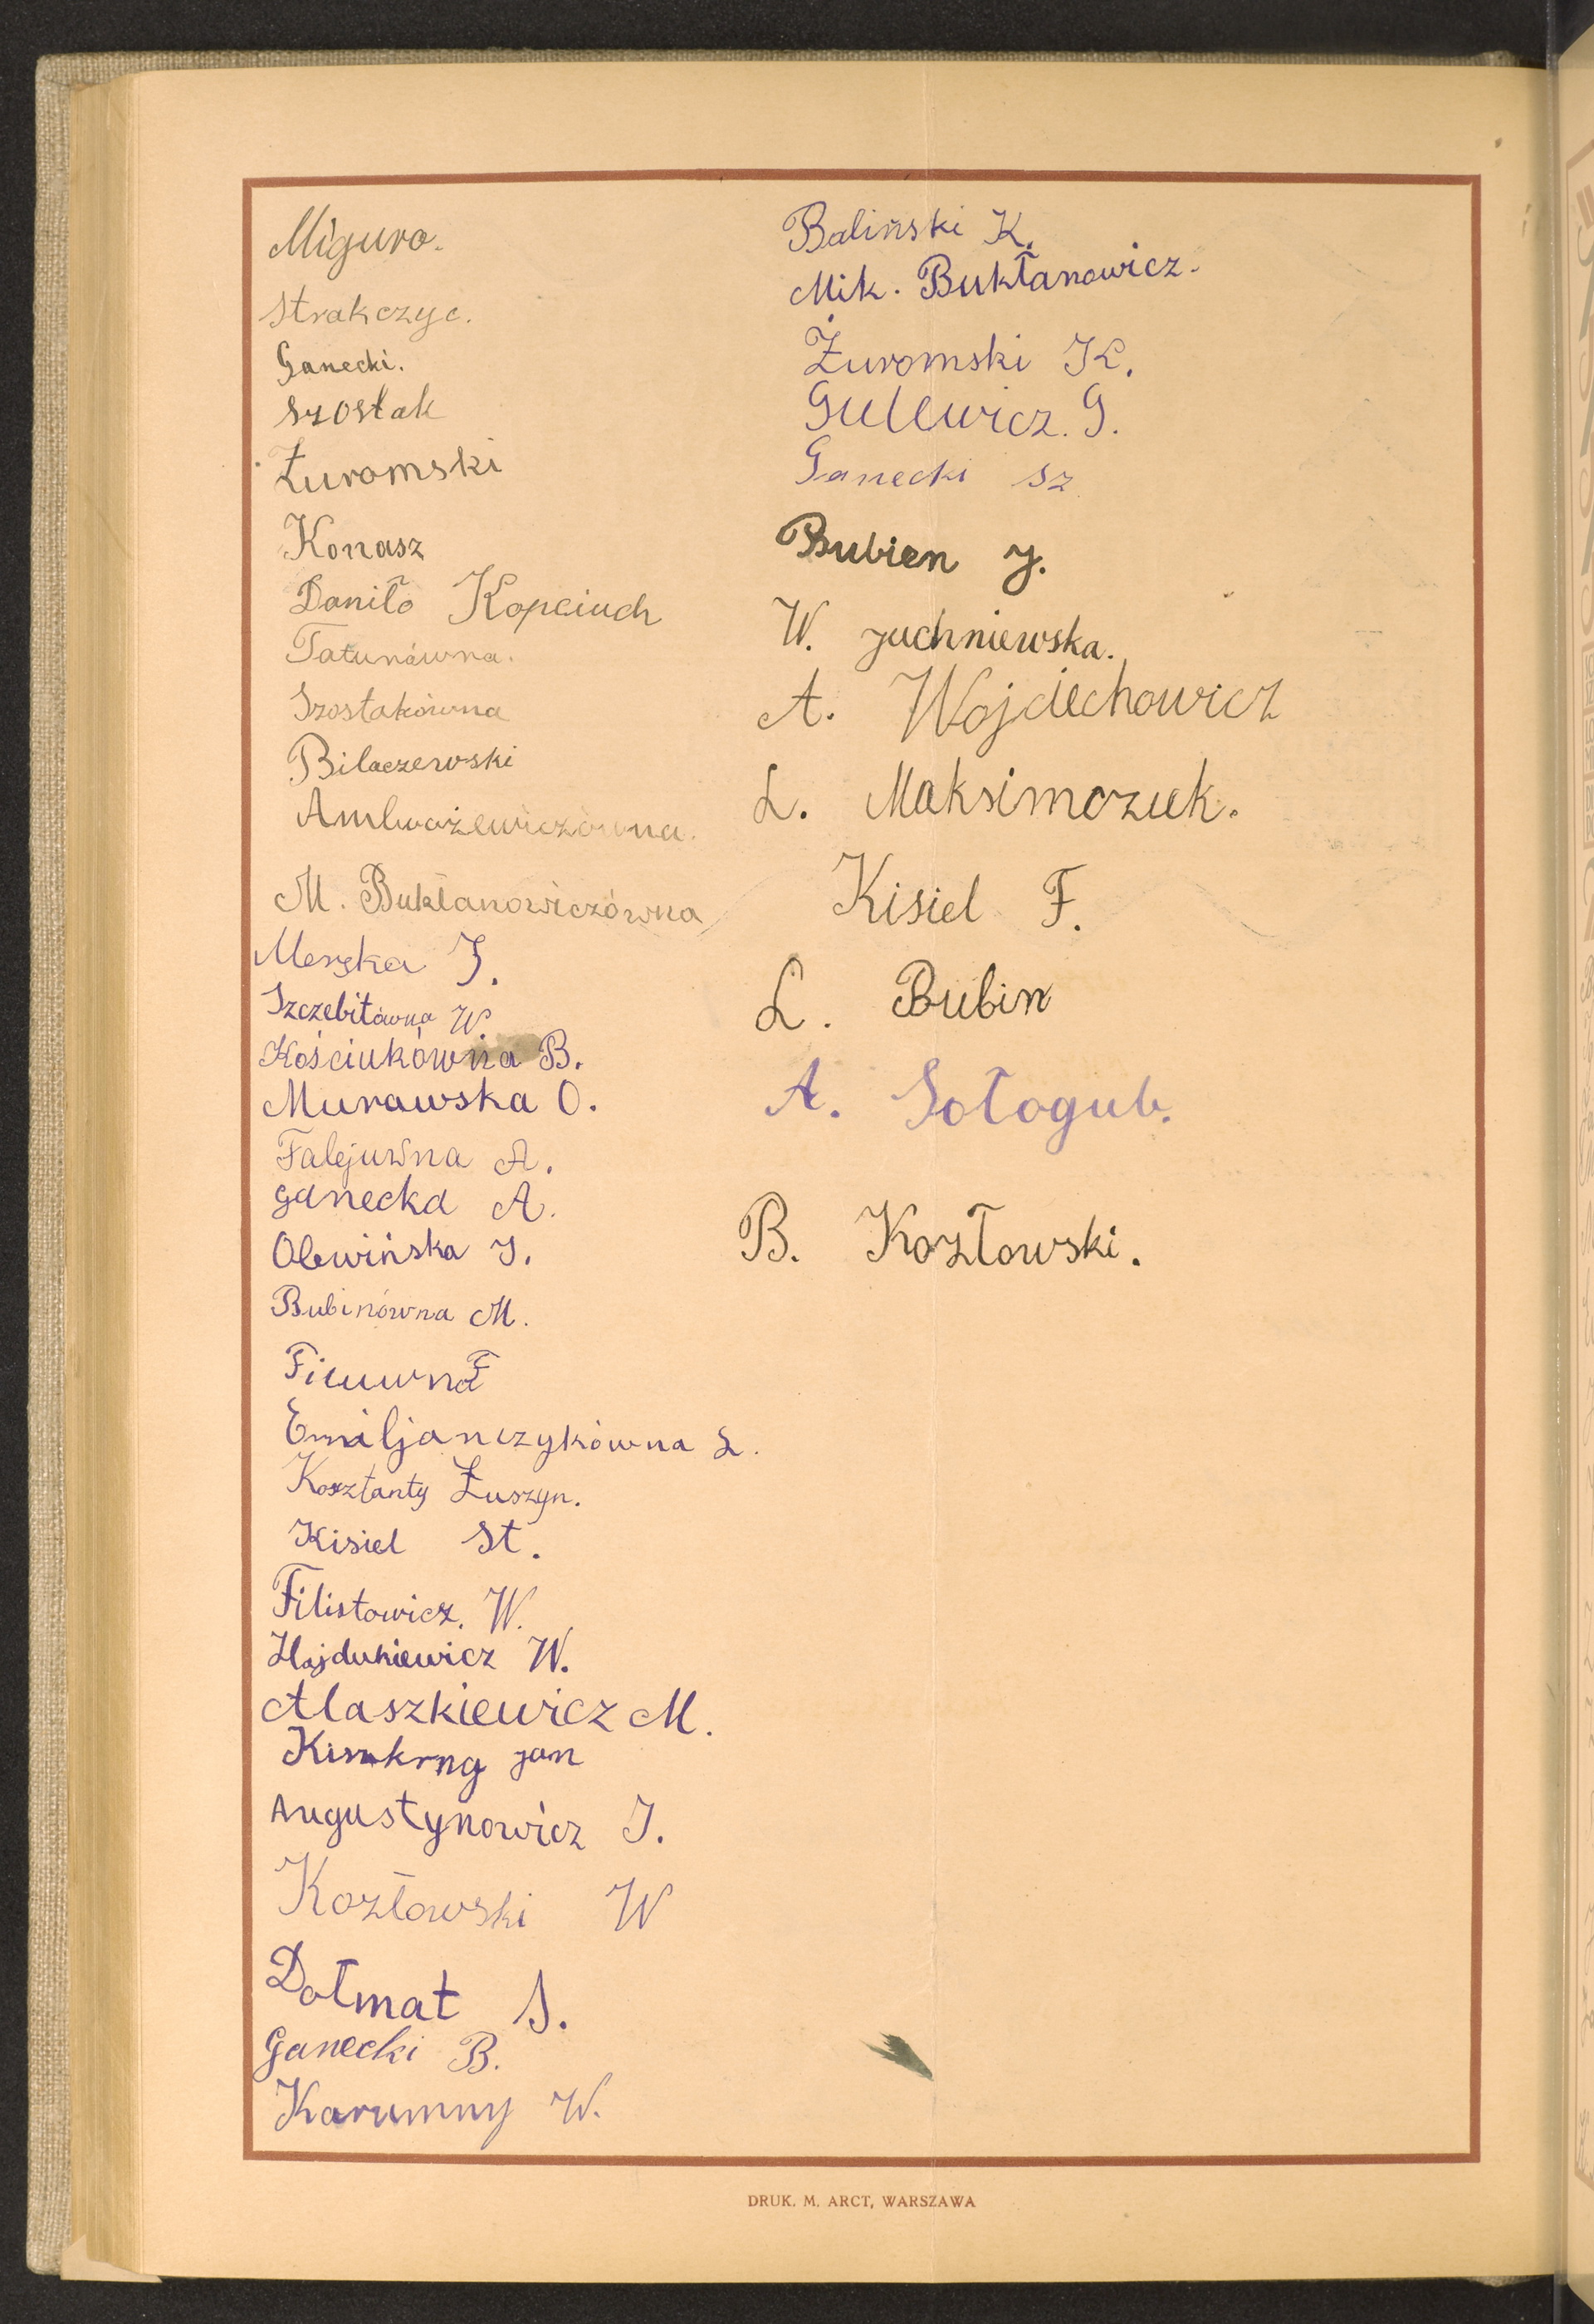 Miguro.
Strakczyc.
Ganecki.
Szostak
Żuromski
Konasz
Daniło Kopciuch
Tatunówna.
Szostakówna
Bilaczewski
Ambrożewiczówna.
M. Bukłanowiczówna
Merska J.
Szczebitówna W.
Kościukówna B.
Murawska O.
Falejuwna A.
Ganecka A.
Olewińska J.
Bubinówna M.
Ficuwna F
Emiljanczykówna L.
Kosztanty Łuszyn.
Kisiel St.
Filistowicz. W.
Hajdukiewicz W.
Alaszkiewicz M.
Jan
Augustynowicz J.
Kozłowski W
Dołmat S.
Ganecki B.
Karumny W.
Baliński K.
Mik. Bukłanowicz.
Żuromski K.
Gulewicz. G.
Ganecki Sz
Bubien J.
W. Juchniewska.
A. Wojciechowicz
L. Maksimczuk.
Kisiel F.
L. Bubin
A. Sołogub.
B. Kozłowski.
DRUK. M. ARCT, WARSZAWA